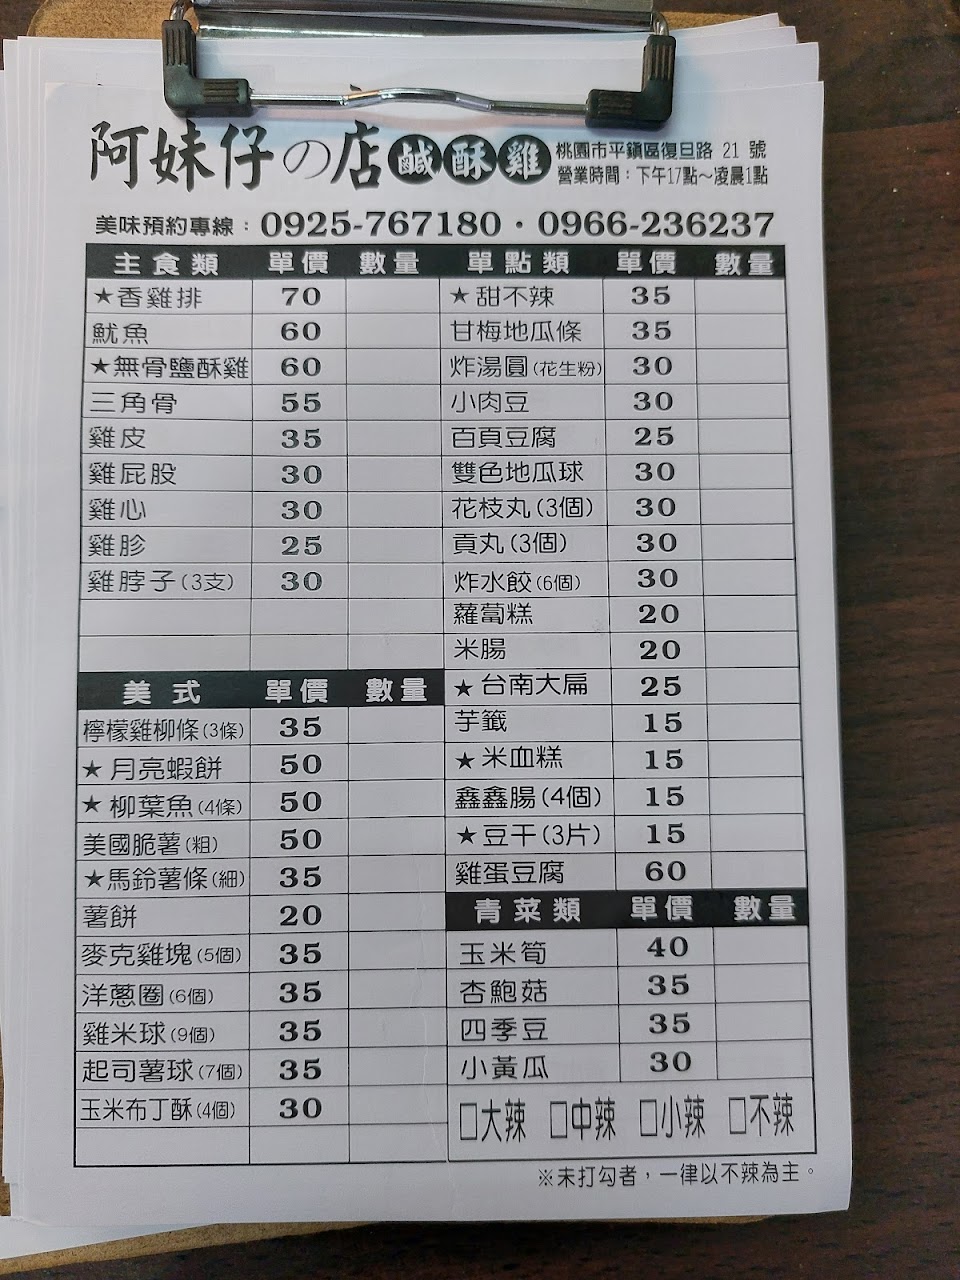 阿妹仔の店鹹酥雞
桃園市平鎮區復旦路 21 號
營業時間：下午17點～凌晨1點
美味預約專線：0925-767180．0966-236237
主食類 單價 數量
★香雞排 70
魷魚 60
★無骨鹽酥雞 60
三角骨 55
雞皮 35
雞屁股 30
雞心 30
雞胗 25
雞脖子(3支) 30
美式 單價 數量
檸檬雞柳條(3條) 35
★月亮蝦餅 50
★柳葉魚(4條) 50
美國脆薯(粗) 50
★馬鈴薯條(細) 35
薯餅 20
麥克雞塊(5個) 35
洋蔥圈(6個) 35
雞米球(9個) 35
起司薯球(7個) 35
玉米布丁酥(4個) 30
單點類 單價 數量
★甜不辣 35
甘梅地瓜條 35
炸湯圓(花生粉) 30
小肉豆 30
百頁豆腐 25
雙色地瓜球 30
花枝丸(3個) 30
貢丸(3個) 30
炸水餃(6個) 30
蘿蔔糕 20
米腸 20
★台南大扁 25
芋籤 15
★米血糕 15
鑫鑫腸(4個) 15
★豆干(3片) 15
雞蛋豆腐 60
青菜類 單價 數量
玉米筍 40
杏鮑菇 35
四季豆 35
小黃瓜 30
□大辣 □中辣 □小辣 □不辣
※未打勾者，一律以不辣為主。